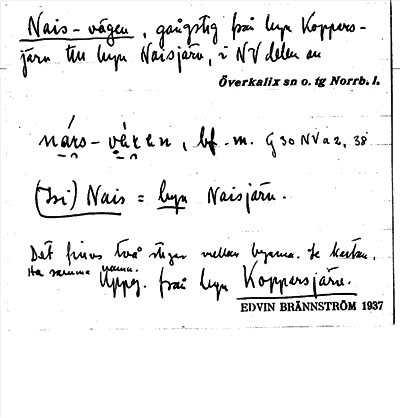 Nais-vägen, gångstig från byn Koppars-
järv till byn Naisjärv, i NV delen av
Överkalix sn o. tg Norrb. l.
bf. m. G 30 NV a 2, 38
(Isi) Nais = byn Naisjärv.
Det finns två stigar mellan byarna. Se kartan.
Ha samma namn.
Uppg. från byn Kopparsjärv.
EDVIN BRÄNNSTRÖM 1937